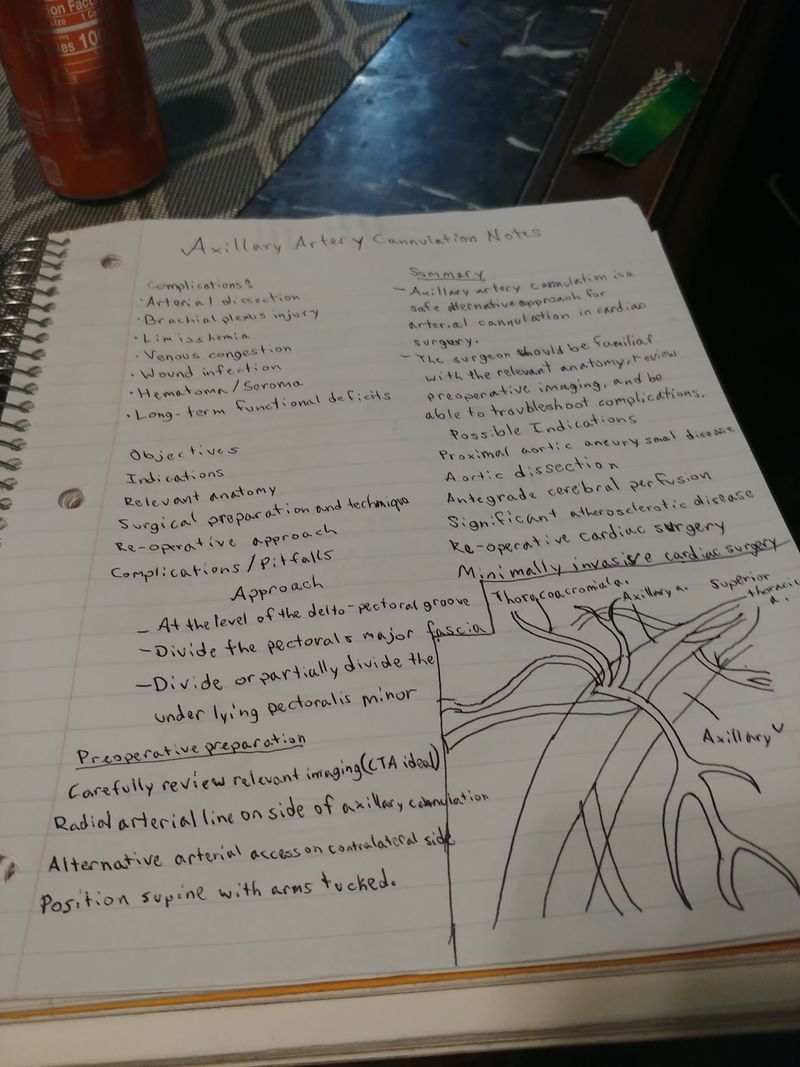 ion Fac
size 1 C
ies 10
Axillary Artery Cannulation Notes
Complications?
· Arterial dissection
· Brachial plexus injury
· Lim isshemia
· Venous congestion
· Wound infection
· Hematoma/Seroma
· Long-term functional deficits
Objectives
Indications
Relevant anatomy
Surgical preparation and technique
Re-operative approach
Complications/Pitfalls
Approach
- At the level of the delto-pectoral groove
- Divide the pectorals major fascia
- Divide or partially divide the
under lying pectoralis minor
Preoperative preparation
Carefully review relevant imaging (CTA ideal)
Radial arterial line on side of axillary cannulation
Alternative arterial access on contralateral side
Position supine with arms tucked.
Summary
- Axillary artery cannulation is a
safe alternative approach for
arterial cannulation in cardiac
surgury.
- The surgeon should be familiar
with the relevant anatomy, review
preoperative imaging, and be
able to troubleshoot complications.
Possible Indications
Proximal aortic aneurysmal disease
Aortic dissection
Antegrade cerebral perfusion
Significant atherosclerotic disease
Re-operative cardiac surgery
Minimally invasive cardiac surgery
Thorgcoacromial a.
Axillary a.
Superior
thoracic
a.
Axillary v